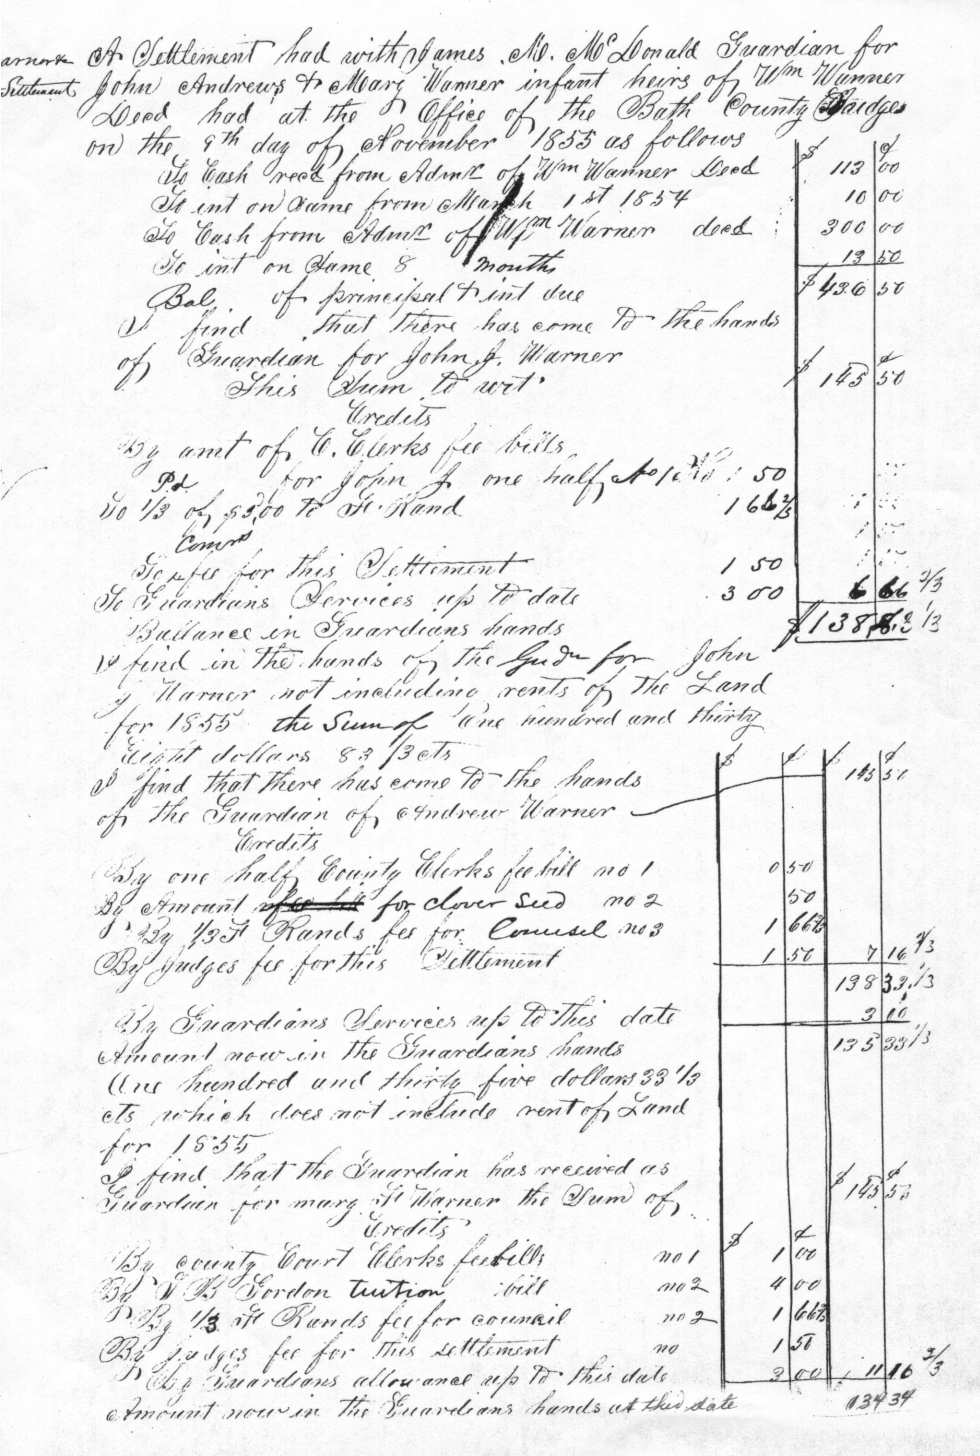 A Settlement had with James M. McDonald Guardian for
Settlement John Andrews & Mary Warner infant heirs of Wm Warner
Decd had at the Office of the Bath County Judges
on the 9th day of November 1855 as follows $ ¢
To Cash recd from Admx of Wm Warner Decd 113 00
To int on Same from March 1st 1854 10 00
To Cash from Admx of Wm Warner decd 300 00
To int on Same 8 months 13 50
Bal of principal & int due $436 50
I find that there has come to the hands
of Guardian for John J. Warner $ ¢
This Sum to wit 145 50
Credits
By amt of C. Clerks fee bills
Pd for John J one half No 1 50
Do 1/3 of $5,00 to H. Rand 1 66 2/3
Comrs
To fee for this Settlement 1 50
To Guardians Services up to date 3 00 6 66 2/3
Ballance in Guardians hands $138 1/3
I find in the hands of the Gudn for John
J Warner not including rents of the Land
for 1855 the Sum of One hundred and thirty
Eight dollars 83 1/3 cts
I find that there has come to the hands $ ¢ $ ¢ 145 50
of the Guardian of Andrew Warner
Credits
By one half County Clerks fee bill no 1 0 50
By Amount for clover Seed no 2 50
By 1/3 H Rands fee for Counsel no 3 1 66 2/3
By Judges fee for this Settlement 1 50 7 16 2/3
138 33 1/3
By Guardians Services up to this date 3 00
Amount now in the Guardians hands 135 33 1/3
One hundred and thirty five dollars 33 1/3
cts which does not include rent of Land
for 1855
I find that the Guardian has received as $ ¢
Guardian for mary H Warner the Sum of 145 50
Credits
By county Court Clerks feebills no 1 $ 1 ¢ 00
By B Gordon tuition bill no 2 4 00
By 1/3 H Rands fee for council no 2 1 66 2/3
By judges fee for this settlement no 1 50
By Guardians allowance up to this date 3 00 11 16 2/3
Amount now in the Guardians hands at this date 134 34